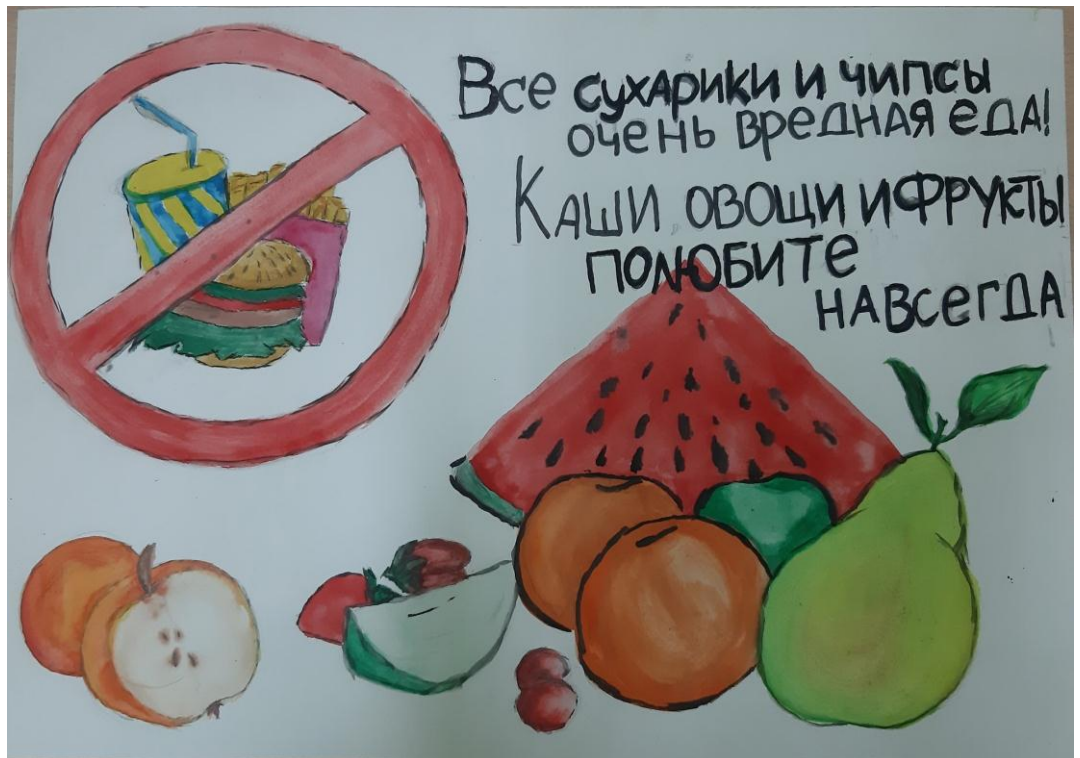 Все сухарики и чипсы
очень вредная еда!
Каши овощи и фрукты
полюбите
навсегда